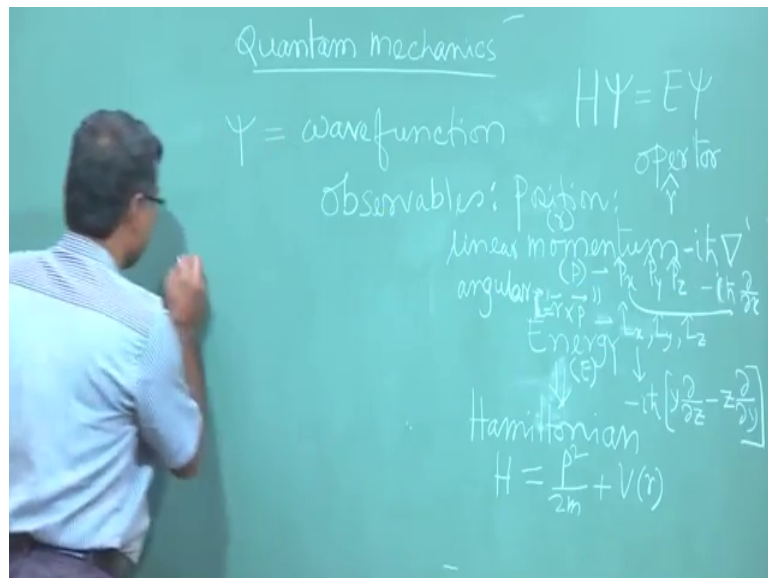 Quantam mechanics
HΨ = EΨ
Ψ = wavefunction
opertor
Observables: Position: r̂
(r)
linear momentum -iħ∇
(p) - p̂x p̂y p̂z -iħ ∂/∂x
angular " L̂x, L̂y, L̂z
L⃗=r⃗×p⃗
Energy
(E) -iħ[y ∂/∂z - z ∂/∂y]
Hamiltonian
H = p²/2m + V(r)